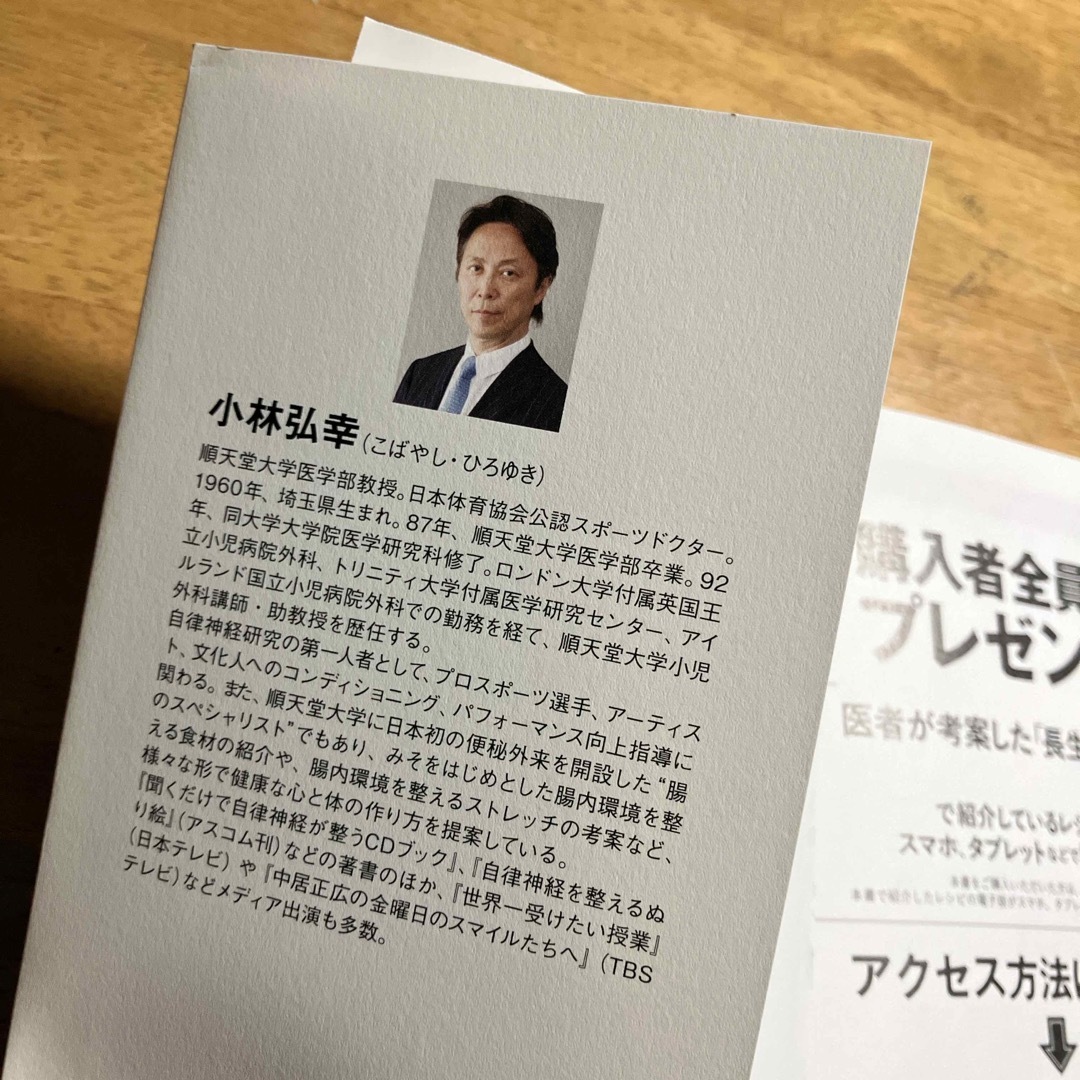 小林弘幸(こばやし・ひろゆき)
順天堂大学医学部教授。日本体育協会公認スポーツドクター。
1960年、埼玉県生まれ。87年、順天堂大学医学部卒業。92
年、同大学大学院医学研究科修了。ロンドン大学付属英国王
立小児病院外科、トリニティ大学付属医学研究センター、アイ
ルランド国立小児病院外科での勤務を経て、順天堂大学小児
外科講師・助教授を歴任する。
自律神経研究の第一人者として、プロスポーツ選手、アーティス
ト、文化人へのコンディショニング、パフォーマンス向上指導に
関わる。また、順天堂大学に日本初の便秘外来を開設した“腸
のスペシャリスト”でもあり、みそをはじめとした腸内環境を整
える食材の紹介や、腸内環境を整えるストレッチの考案など、
様々な形で健康な心と体の作り方を提案している。
『聞くだけで自律神経が整うCDブック』、『自律神経を整えるぬ
り絵』(アスコム刊)などの著書のほか、『世界一受けたい授業』
(日本テレビ)や『中居正広の金曜日のスマイルたちへ』(TBS
テレビ)などメディア出演も多数。
購入者全員
プレゼン
医者が考案した「長生
で紹介しているレシ
スマホ、タブレットなどで
本書をご購入いただいた方は、
本書で紹介したレシピの電子版がスマホ、タブレ
アクセス方法は